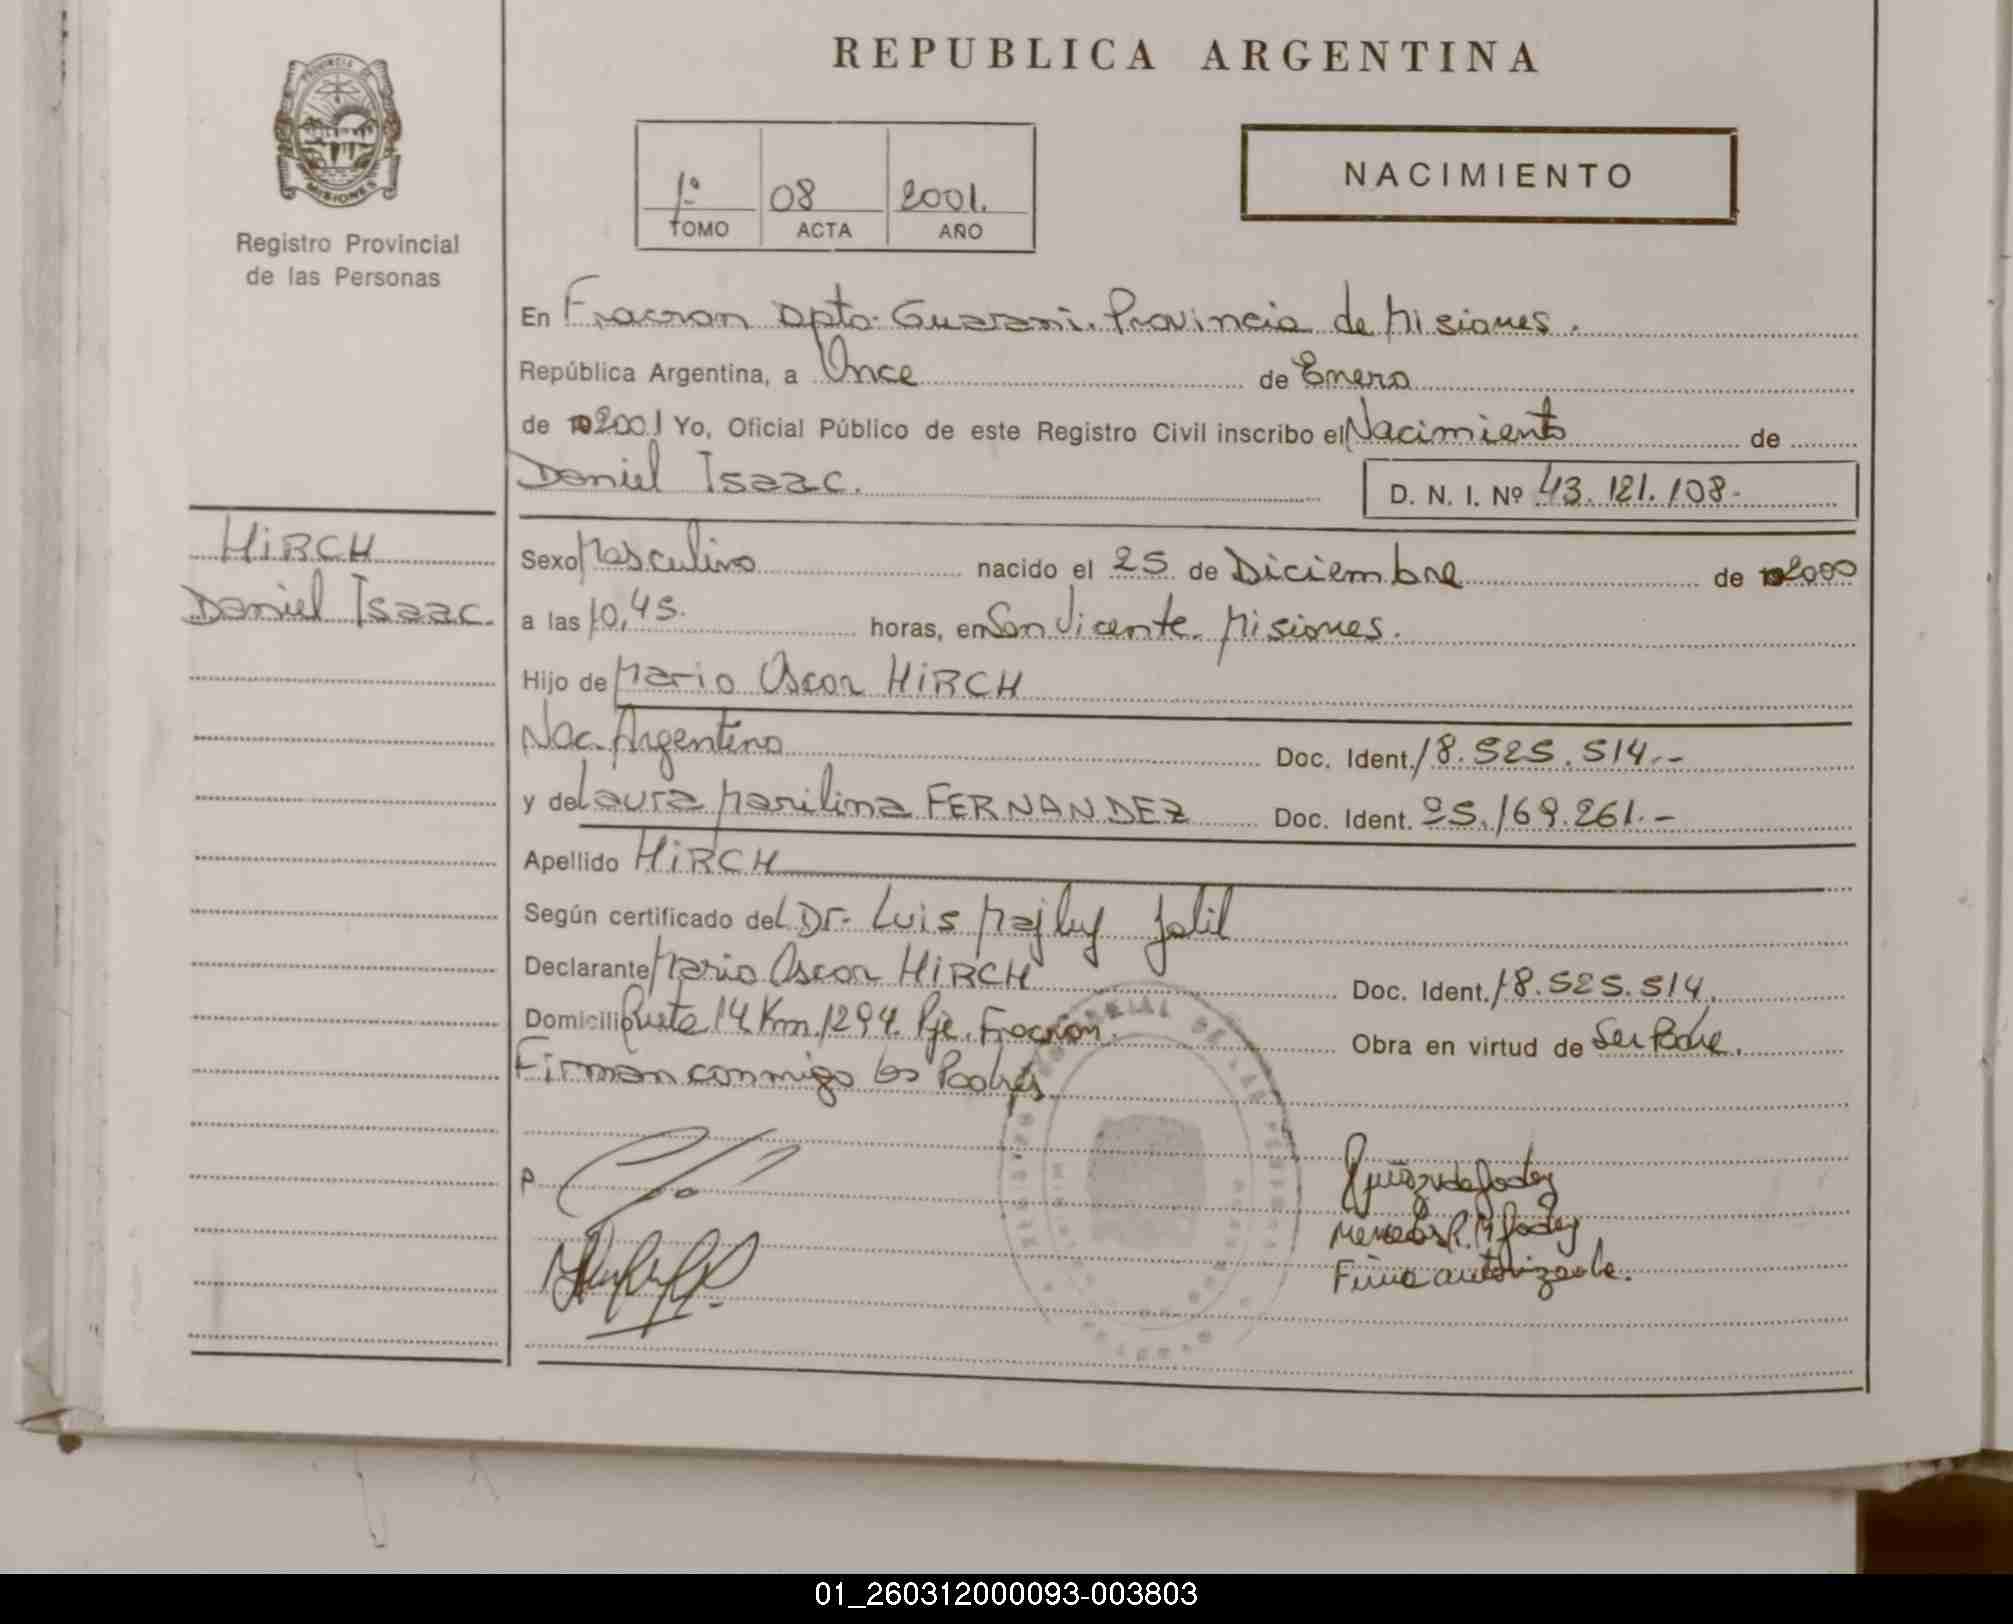 REPUBLICA ARGENTINA
PROVINCIA DE
MISIONES
Registro Provincial
de las Personas
1º 08 2001.
TOMO ACTA AÑO
NACIMIENTO
En Fracran Dpto. Guarani. Provincia de Misiones.
República Argentina, a Once de Enero
de 2001 Yo, Oficial Público de este Registro Civil inscribo el Nacimiento de
Daniel Isaac. D. N. I. Nº 43.121.108-
HiRCH
Daniel Isaac.
Sexo Masculino nacido el 25 de Diciembre de 2000
a las 10,45. horas, en San Vicente. Misiones.
Hijo de Mario Oscar HiRCH
Nac. Argentino Doc. Ident. 18.525.514.-
y de Laura Marilina FERNANDEZ Doc. Ident. 25.169.261.-
Apellido HiRCH
Según certificado del Dr. Luis Jalil
Declarante Mario Oscar HiRCH Doc. Ident. 18.525.514.
Domicilio Ruta 14 Km. 1294. Pje. Fracran. Obra en virtud de Ser Padre.
Firman conmigo los Padres
P.
Firma autorizada.
01_260312000093-003803